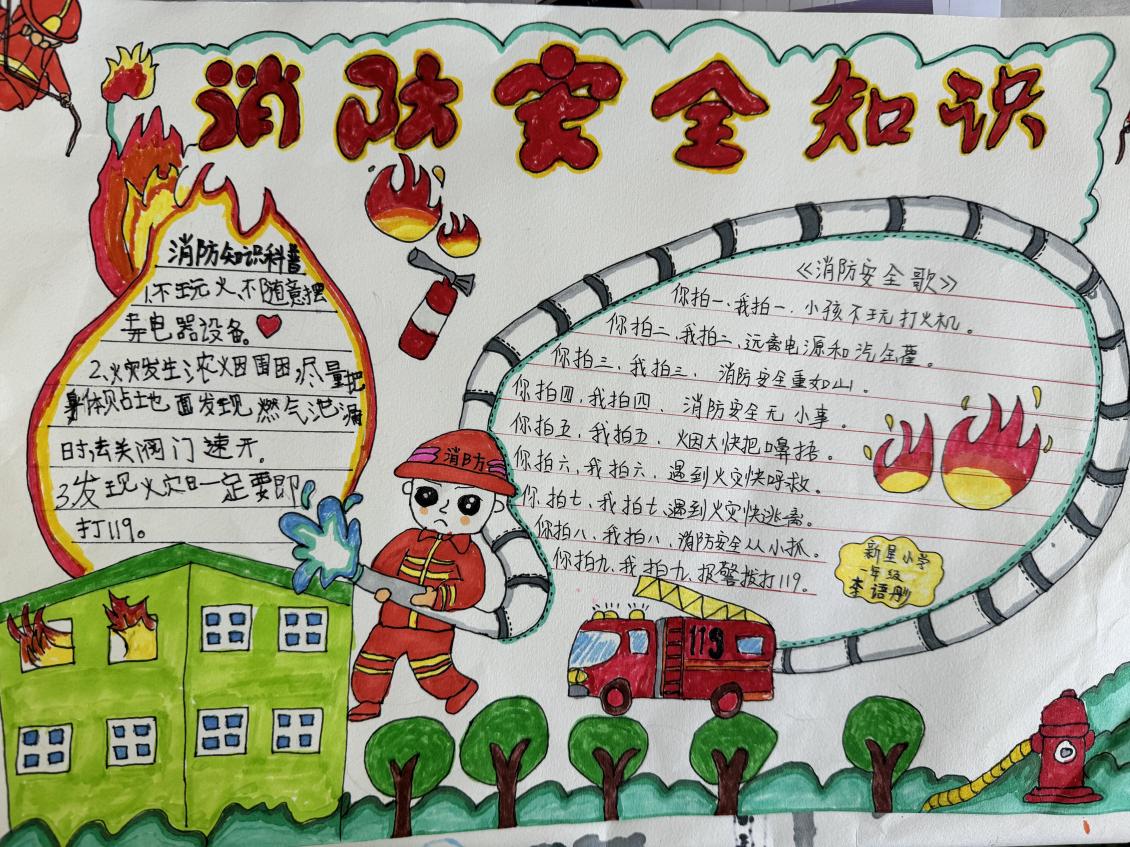 消防安全知识
消防知识科普
1.不玩火、不随意摆
弄电器设备。
2、火灾发生浓烟围困,尽量把
身体贴地面发现燃气泄漏
时,去关阀门速开。
3、发现火灾时一定要即
打119。
消防
《消防安全歌》
你拍一、我拍一、小孩不玩打火机。
你拍二、我拍二、远离电源和汽全灌。
你拍三、我拍三、消防安全重如山。
你拍四、我拍四、消防安全无小事。
你拍五、我拍五、烟大快把口鼻捂。
你拍六、我拍六、遇到火灾快呼救。
你拍七、我拍七、遇到火灾快逃离。
你拍八、我拍八、消防安全从小抓。
你拍九、我拍九、报警拨打119。
新星小学
一年级
李语彤
119